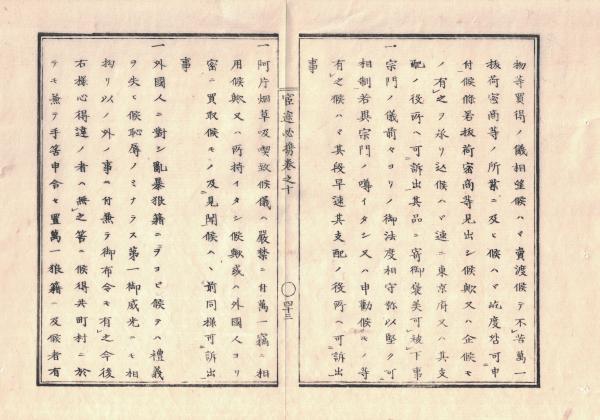 物等買得ノ儀相望候ハヽ賣渡候テ不苦萬一
抜荷密商等ノ所業ニ及ヒ候ハヽ屹度咎可申
付候條若抜荷密商等見出シ候歟又ハ企候モ
ノ有之ヲ承リ込候ハヽ速ニ東京府又ハ其支
配ノ役所ヘ可訴出其品ニ寄御褒美可被下事
一宗門ノ儀前々ヨリノ御法度相守弥以堅ク可
相制若異宗門ノ噂イタシ又ハ申勸候モノ等
有之候ハヽ其段早速其支配ノ役所ヘ可訴出
事
宦途必携巻之十
四十三
一阿片烟草及喫致候儀ハ嚴禁ニ付萬一竊ニ相
用候歟又ハ所持イタシ候歟或ハ外國人ヨリ
密ニ買取候モノ及見聞候ハヽ前同様可訴出
事
一外國人ニ對シ亂暴狼籍ニヲヨヒ候テハ禮義
ヲ失ヒ候恥辱ノミナラス第一御威光ニモ相
拘リ以ノ外ノ事ニ付兼テ御布令モ有之今後
右様心得違ノ者ハ無之筈ニ候得共町村ニ於
テモ兼テ手筈申合セ置萬一狼籍ニ及候者有